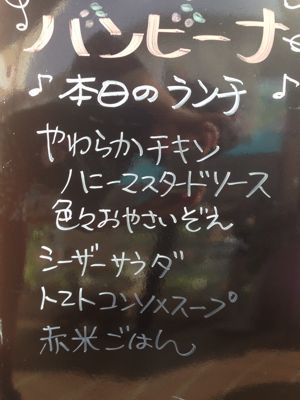 バンビーナ
♪本日のランチ♪
やわらかチキン
ハニーマスタードソース
色々おやさいぞえ
シーザーサラダ
トマトコンソメスープ
赤米ごはん